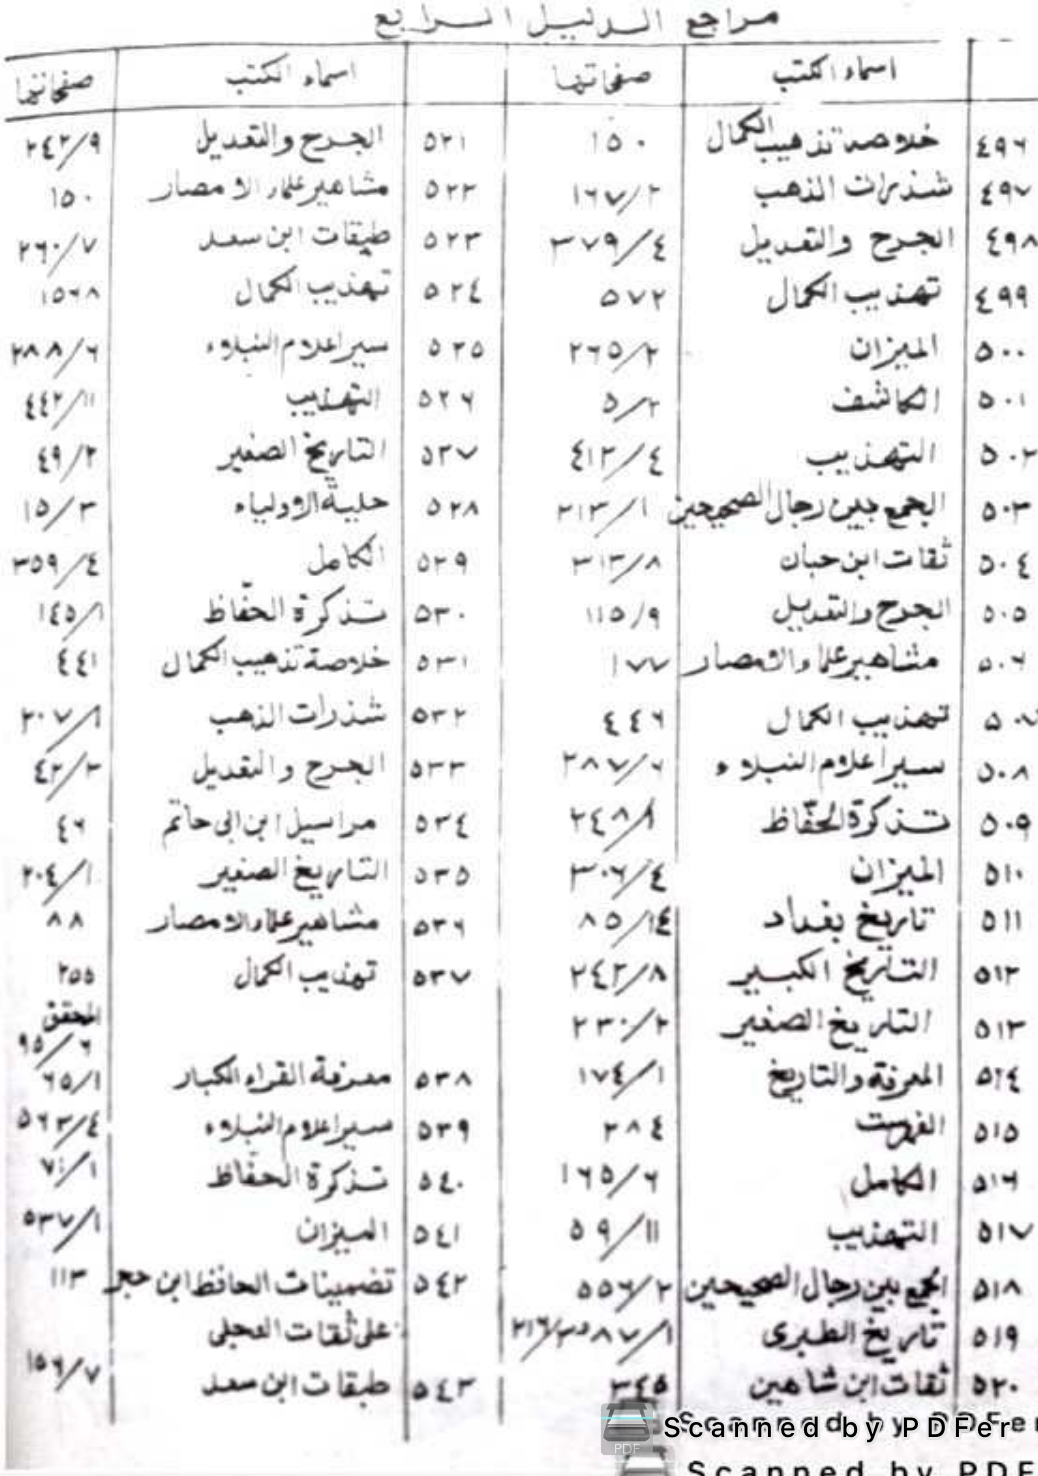 مراجع الدليل الرابع
اسماء الكتب صفحاتها
٤٩٦ خلاصة تذهيب الكمال ١٥٠
٤٩٧ شذرات الذهب ١٦٧/٢
٤٩٨ الجرح والتعديل ٣٧٩/٤
٤٩٩ تهذيب الكمال ٥٧٢
٥٠٠ الميزان ٢٦٥/٢
٥٠١ الكاشف ٥/٢
٥٠٢ التهذيب ٤١٣/٤
٥٠٣ الجمع بين رجال الصحيحين ٢١٣/١
٥٠٤ ثقات ابن حبان ٣١٣/٨
٥٠٥ الجرح والتعديل ١١٥/٩
٥٠٦ مشاهير علماء الامصار ١٧٧
٥٠٧ تهذيب الكمال ٤٤٦
٥٠٨ سير اعلام النبلاء ٢٨٧/٦
٥٠٩ تذكرة الحفّاظ ٢٤٨/١
٥١٠ الميزان ٣٠٦/٤
٥١١ تاريخ بغداد ٨٥/١٤
٥١٢ التاريخ الكبير ٢٤٢/٨
٥١٣ التاريخ الصغير ٢٣٠/٢
٥١٤ المعرفة والتاريخ ١٧٤/١
٥١٥ الفهرست ٢٨٤
٥١٦ الكامل ١٦٥/٦
٥١٧ التهذيب ٥٩/١١
٥١٨ الجمع بين رجال الصحيحين ٥٥٦/٢
٥١٩ تاريخ الطبرى
٥٢٠ ثقات ابن شاهين ٣٤٥
اسماء الكتب صفحاتها
٥٢١ الجرح والتعديل ٢٤٢/٩
٥٢٢ مشاهير علماء الامصار ١٥٠
٥٢٣ طبقات ابن سعد ٢٦٠/٧
٥٢٤ تهذيب الكمال ١٥٦٨
٥٢٥ سير اعلام النبلاء ٢٨٨/٦
٥٢٦ التهذيب ٤٤٢/١١
٥٢٧ التاريخ الصغير ٤٩/٢
٥٢٨ حلية الاولياء ١٥/٣
٥٢٩ الكامل ٣٥٩/٤
٥٣٠ تذكرة الحفّاظ ١٤٥/١
٥٣١ خلاصة تذهيب الكمال ٤٤١
٥٣٢ شذرات الذهب ٢٠٧/١
٥٣٣ الجرح والتعديل ٤٢/٣
٥٣٤ مراسيل ابن ابى حاتم ٤٦
٥٣٥ التاريخ الصغير ٢٠٤/١
٥٣٦ مشاهير علماء الامصار ٨٨
٥٣٧ تهذيب الكمال ٢٥٥
المحقق
٩٥/٦
٥٣٨ معرفة القراء الكبار ٦٥/١
٥٣٩ سير اعلام النبلاء ٥٦٣/٤
٥٤٠ تذكرة الحفّاظ ٧١/١
٥٤١ الميزان ٥٣٧/١
٥٤٢ تضمينات الحافظ ابن حجر ١١٣
على ثقات العجلى
٥٤٣ طبقات ابن سعد ١٥٦/٧
Scanned by PDFer
PDF
Scanned by PDF